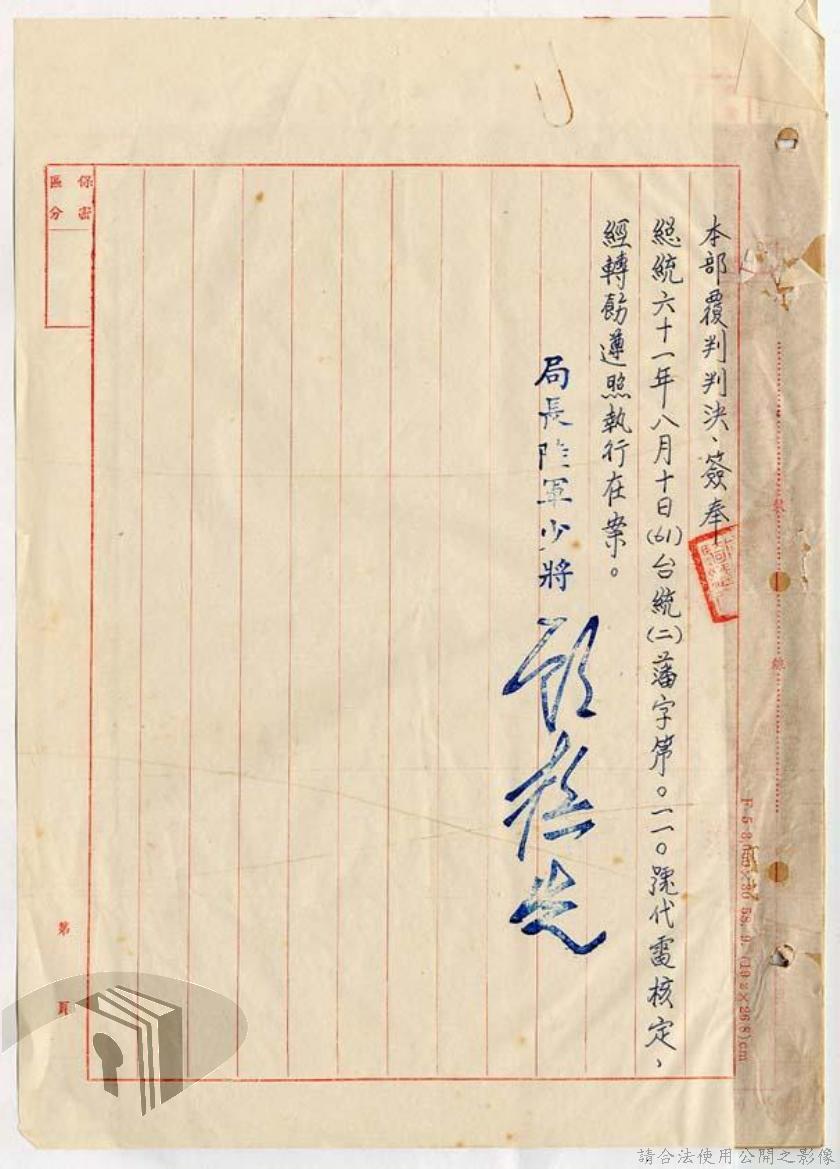 本部覆判判決、簽奉
總統六十一年八月十日(61)台統(二)藩字第○一一○號代電核定、
經轉飭遵照執行在案。
局長陸軍少將
保密
區分
第
頁
裝
線
請合法使用公開之影像